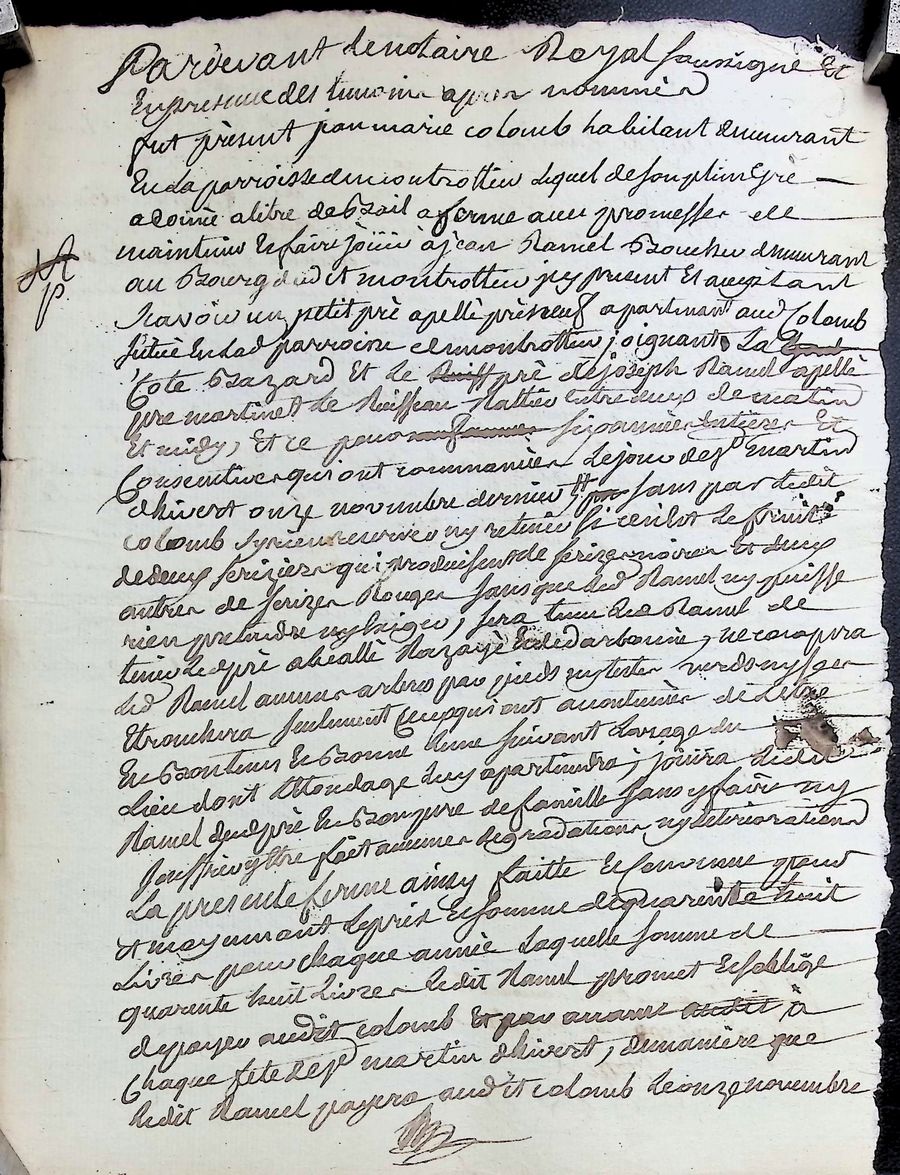 Pardevant le notaire Royal soussigné Et
En presence des temoins apres nommés
fut présent jean marie colomb habitant demeurant
En la parroisse de montrottier Lequel de son plein Gré
a donné a titre de Bail a ferme avec promesse de
maintenir Et faire jöuir à jean Ramel Boucher demeurant
au Bourg dudit montrottier jcy present Et acceptant
Scavoir un petit pré apellé pré neuf apartenant aud Colomb
situé En lad parroisse de montrottier joignant La
Cote Bazard Et Le pré de joseph Ramel apellé
pré martinet Le Ruisseau Rattier entre deux de matin
Et midy, Et ce pour six années Entieres Et
Consecutives qui ont commancées Le jour de st martin
d'hivert onze novembre dernier sans par ledit
colomb S'y rien reserver ny retenir si ce n'est Le fruit
de deux seriziers qui produisent de serizes noires Et deux
autres de serizes Rouges sans que led Ramel n'y puisse
rien pretendre ny Exiger, sera tenu led Ramel de
tenir Led pré a beallé Razayé Et dedarboniné, ne coupera
Led Ramel aucuns arbres par pieds ny testes verds ny secs
Et ronchera seulement Ceux qui ont acoutumés de L'etre
En Bon tems Et Bonne Lune suivant L'usage du
Lieu dont L'Emondage Luy apartiendra, jöuira Ledit
Ramel dud pré En Bon pere de famille sans y faire ny
souffrir y Etre fait aucunes degradations ny deteriorations
La presente ferme ainsy faitte Et convenue pour
Et moyennant Le prix Et somme de quarente huit
Livres pour chaque année Laquelle somme de
quarente huit Livres Ledit Ramel promet Et s'oblige
de payer audit colomb Et par avance audit à
Chaque fete de st martin d'hivert, de maniere que
Ledit Ramel payera audit colomb Le onze novembre